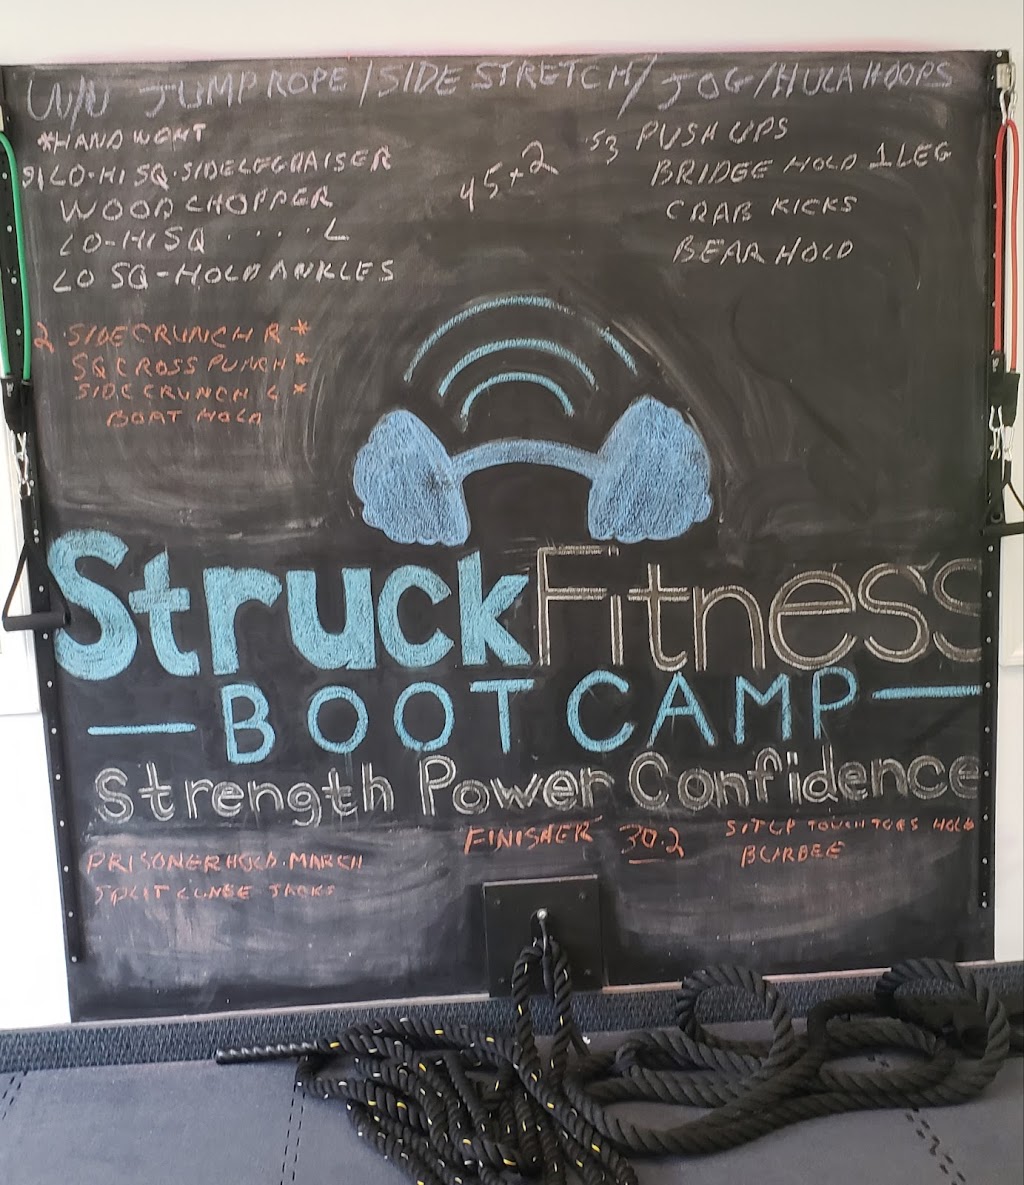 W/U JUMP ROPE / SIDE STRETCH / JOG / HULA HOOPS
*HAND WGHT
LO-HI SQ-SIDELEGRAISER
WOOD CHOPPER
LO-HI SQ . . . . L
LO SQ-HOLD ANKLES
45 + 2
53 PUSH UPS
BRIDGE HOLD 1 LEG
CRAB KICKS
BEAR HOLD
2 SIDE CRUNCH R *
SQ CROSS PUNCH *
SIDE CRUNCH L *
BOAT HOLD
StruckFitness
BOOT CAMP
Strength Power Confidence
PRISONER HOLD MARCH
SPLIT LUNGE JACKS
FINISHER 30.2
SITUP TOUCH TOES HOLD
BURBEE